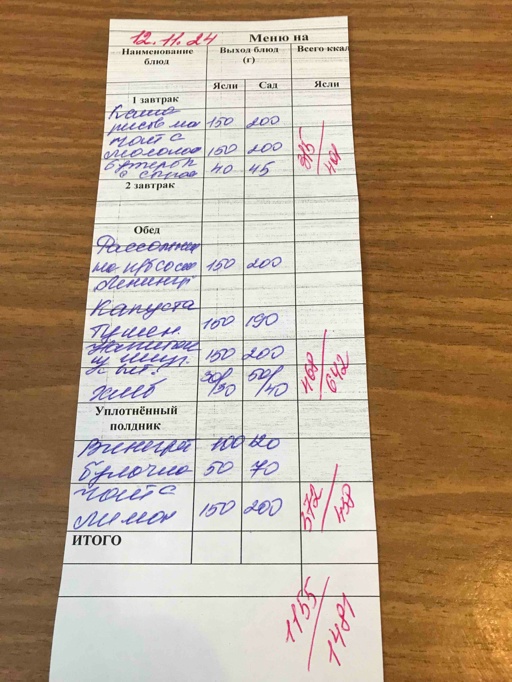 12.11.24 Меню на
Наименование блюд Выход блюд (г) Всего ккал
Ясли Сад Ясли
1 завтрак
Каша
рисовая 150 200
Чай с
молоком 150 200 315/401
Бутерброд
с 40 45
2 завтрак
Обед
Рассольник
на к/б
Ленингр 150 200
Капуста
тушен. 150 190
Напиток
из шип. 150 200 468/642
Хлеб 30/30 50/40
Уплотнённый
полдник
Винегрет 100 120
Булочка 50 70
Чай с
Лимон 150 200 372/438
ИТОГО
1155/1481